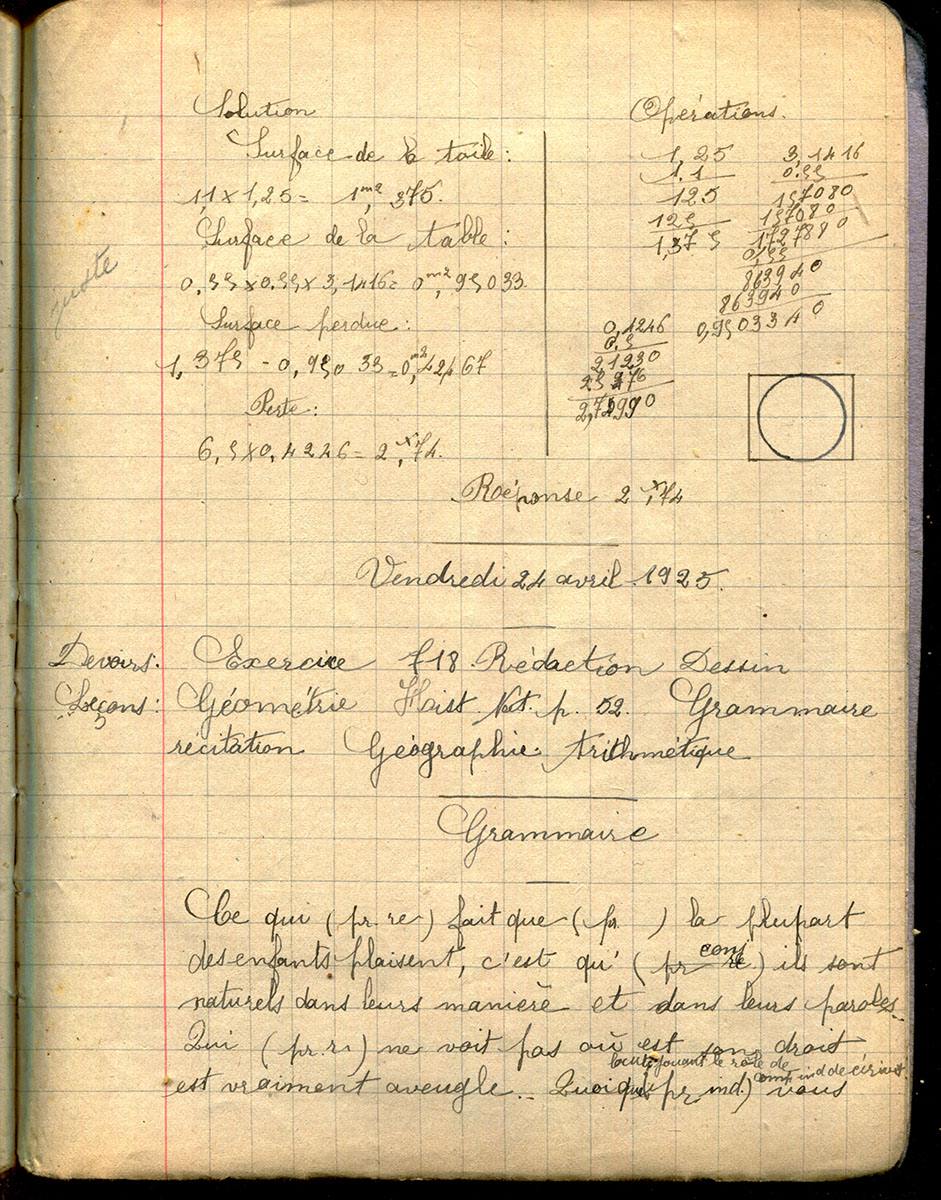 Solution
Surface de la toile :
1,1 x 1,25 = 1,m2 375.
Surface de la table :
0,55 x 0,55 x 3,1416 = 0,m2 95033.
Surface perdue :
1,375 - 0,95033 = 0,m2 42467
Perte :
6,5 x 0,4246 = 2,74.
juste
Opérations.
1,25
1,1
125
125
1,375
3,1416
0.55
157080
157080
1727880
0,55
863940
863940
0,9503340
0,1246
0.5
21230
2,74990
Réponse 2,74
Vendredi 24 avril 1925.
Devoirs : Exercice 718. Rédaction Dessin
Leçons : Géométrie Hist. Nat. p. 52. Grammaire
récitation Géographie. Arithmétique
Grammaire
Ce qui (pr. re) fait que (pr. ) la plupart
des enfants plaisent, c'est qu' (pr re conj) ils sont
naturels dans leurs manière et dans leurs paroles.
Qui (pr. re) ne voit pas où est son droit
jouant le rôle de
comp. ind de
est vraiment aveugle.. Quoique (pr ind.) vous